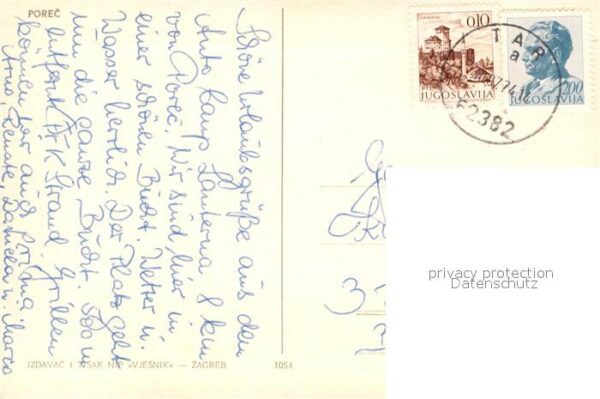 POREČ
Schöne Urlaubsgrüße aus dem
Auto Camp Lanterna 8 km
von Poreč. Wir sind hier in
einer schönen Bucht. Wetter u.
Wasser herrlich. Der Platz geht
um die ganze Bucht. 500 m
entfernt FKK Strand. Grillen
können wir auch prima
Arno, Renate, Daniela u. Marco
IZDAVAČ I TISAK NP »VJESNIK« — ZAGREB 1054
0.10
JUGOSLAVIJA
2.00
JUGOSLAVIJA
TAR
a
52382
3
privacy protection
Datenschutz